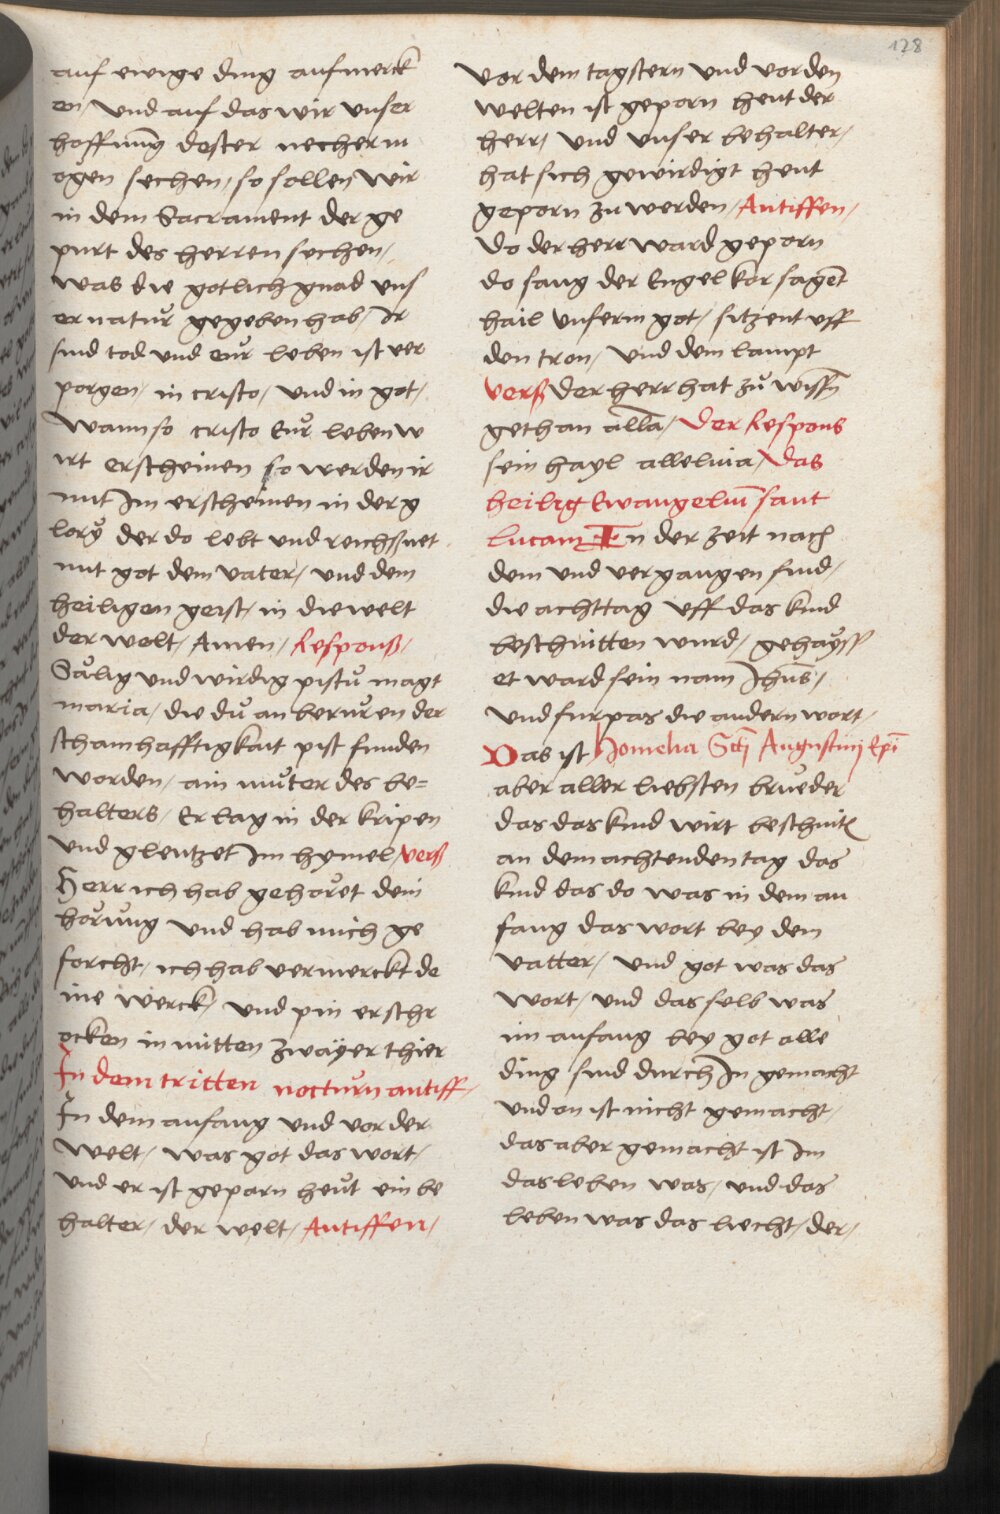 128
auf ewige ding aufmerck
en / und auf das wir unser
hoffnung dester necher m
ogen sechen / so sollen wir
in dem Sacrament der ge
purt des herren sechen /
was die gotlich gnad uns
er natur gegeben hab / Ir
sind tod und eur leben ist ver
porgen / in cristo / und in got /
Wann so cristo Eur leben w
irt erscheinen so werden ir
mit Im erscheinen in der g
lory der do lebt und reichßnet
mit got dem vater / und dem
heiligen geist / in die welt
der welt / Amen / Responß /
Sälig und wirdig pistu magt
maria / die du an beruren der
schamhafftigkait pist funden
worden / ain muter des be=
halters / Er lag in der kripen
und glentzet Im hymel verß
Herr ich hab gehöret dein
hörung und hab mich ge
forcht / ich hab vermerckt de
ine werck / und pin erschr
ocken in mitten zwayer thier
In dem tritten nocturn antiff /
In dem anfang und vor der
welt / was got das wort /
und er ist geparn heut ein be
halter / der welt / Antiffen /
vor dem tagstern und vor den
welten ist geporn heut der
herr / und unser behalter /
hat sich gewirdigt heut
geporn zu werden / Antiffen /
Do der herr ward geporn
do sang der Engel kor sagēt
hail unserm got / sitzent uff
den tron / und dem lampt
verß der herr hat zu wissn̄
gethan all̄a / Der Respons
sein hayl alleluia / Das
heilig Ewangeliū sant
lucam In der zeit nach
dem und vergangen sind /
die acht tag uff das kind
beschnitten wurd / gehayss
et ward sein nam Ihūs /
und furpas die andern wort /
Das ist Homelia Sctj Augustinj Epī
aber aller liebsten brueder
das das kind wirt beschnitē
an dem achtenden tag das
kind das do was in dem an
fang das wort bey dem
vatter / und got was das
wort / und das selb was
im anfang bey got alle
ding sind durch In gemacht
und on ist nicht gemacht /
das aber gemacht ist Im
das leben was / und das
leben was das liecht / der /